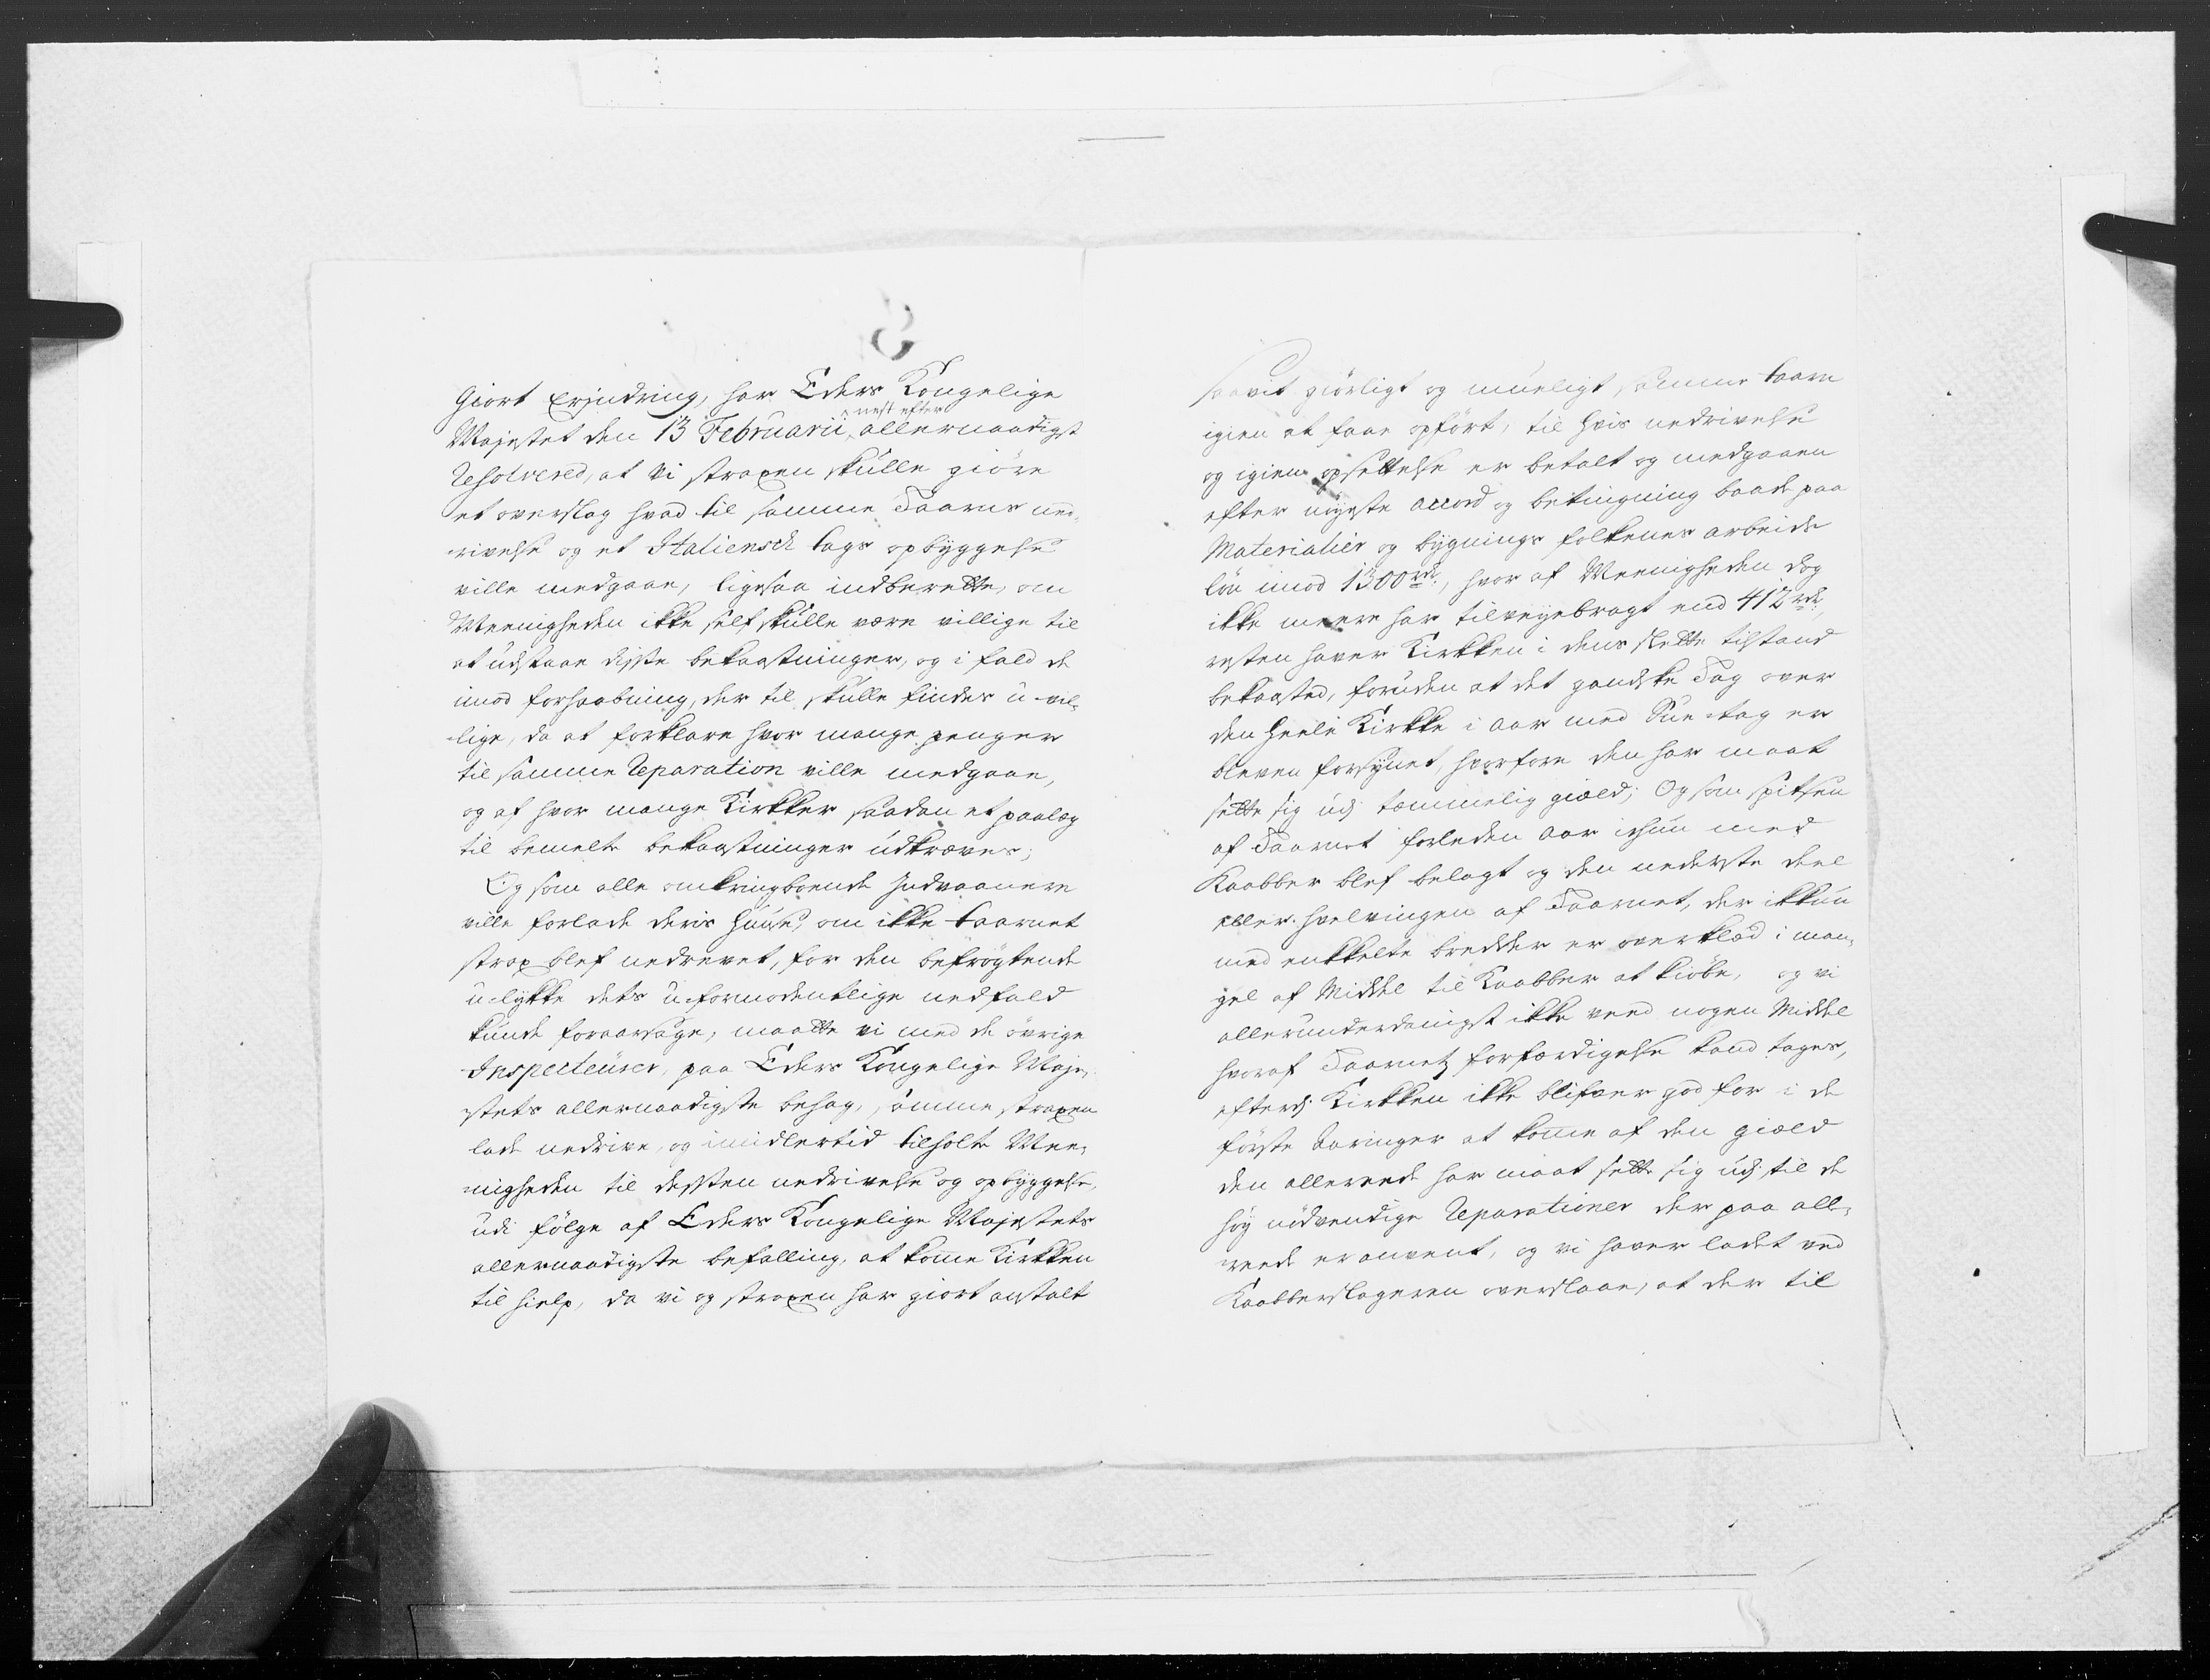 giort Erindring, har Eders Kongelige
nest efter
Majestet den 13 Februarii allernaadigst
Resolvered, at vi straxen skulle giöre
et overslag hvad til samme Taarns ned¬
rivelse og et Italiensch tags opbyggelse
ville medgaae, ligesaa indberette, om
Meenigheden ikke self skulle være villige til
at udstaae disse bekaastninger, og i fald de
imod forhaabning, der til skulle findes u-vil¬
lige, da at forklare hvor mange penger
til samme Reparation ville medgaae,
og af hvor mange Kirkker saadan et paalæg
til bemelte bekaastninger udkræves;
Og som alle omkringboende Indvaanere
ville forlade deris Huuse, om ikke taarnet
strax blef nedrevet, for den befrögtende
u-lykke dets u-formodentlige nedfald
kunde foraarsage, maatte vi med de övrige
Inspecteurer, paa Eders Kongelige Maje¬
stets allernaadigste behag, samme straxen
lade nedrive, og imidlertid tilholte Mee¬
nigheden til dessen nedrivelse og opbyggelse,
udi fölge af Eders Kongelige Majestets
allernaadigste befalling, at komme Kirkken
til hielp, da vi og straxen har giort anstalt
saavit giörligt og mueligt samme taarn
igien at faae opfört, til hvis nedrivelse
og igien opsettelse er betalt og medgaaen
efter nöyeste accord og betingning baade paa
Materialier og bygnings folkenes arbeids
lön imod 1300 rdr, hvor af Meenigheden dog
ikke meere har tilveyebragt end 412 rdr,
resten haver Kirkken i dens slette tilstand
bekaasted, foruden at det gandske Tag over
den heele Kirkke i aar med Sue-tag er
bleven forsynet, hvorfore den har maat
sette sig udj temmelig giæld; Og som spitsen
af Taarnet forleden aar ichun med
Kaabber blef belagt og den nederste deel
eller hvelvingen af Taarnet, der ikkun
med enkkelte bredder er overklæd i man¬
gel af Middel til Kaabber at kiöbe, og vi
allerunderdanigst ikke veed nogen Middel
hvoraf Taarnetz forfærdigelse kand tages,
efterdj Kirkken ikke blifver god for i de
förste Aaringer at komme af den giæld
den allereede har maat sette sig udj til de
höy nödvendige Reparationer der paa alle¬
reede er anvent, og vi haver ladet ved
Kaabberslageren overslaae, at der til